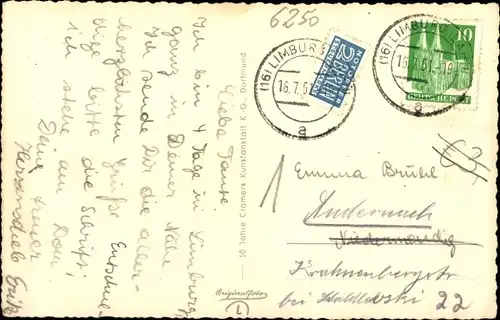 6250
Liebe Tante.
Ich bin 4 Tage in Limburg,
ganz in Deiner Nähe.
Ich sende Dir die aller-
herzlichsten Grüße. Entschul-
dige bitte die Schrift,
ich stehe am Dom.
Dein treuer
Herzensdieb Erik
50 Jahre Cramers Kunstanstalt K. G., Dortmund
Originalfoto
L
NOTOPFER
2 BERLIN
STEUERMARKE
(16) LIMBURG
16.7.51
a
(16) LIMBURG
16.7.51.-19
a
10
DEUTSCHE POST
Emma Brühl
Andernach
Niedermendig
Krahnenbergstr
bei
22